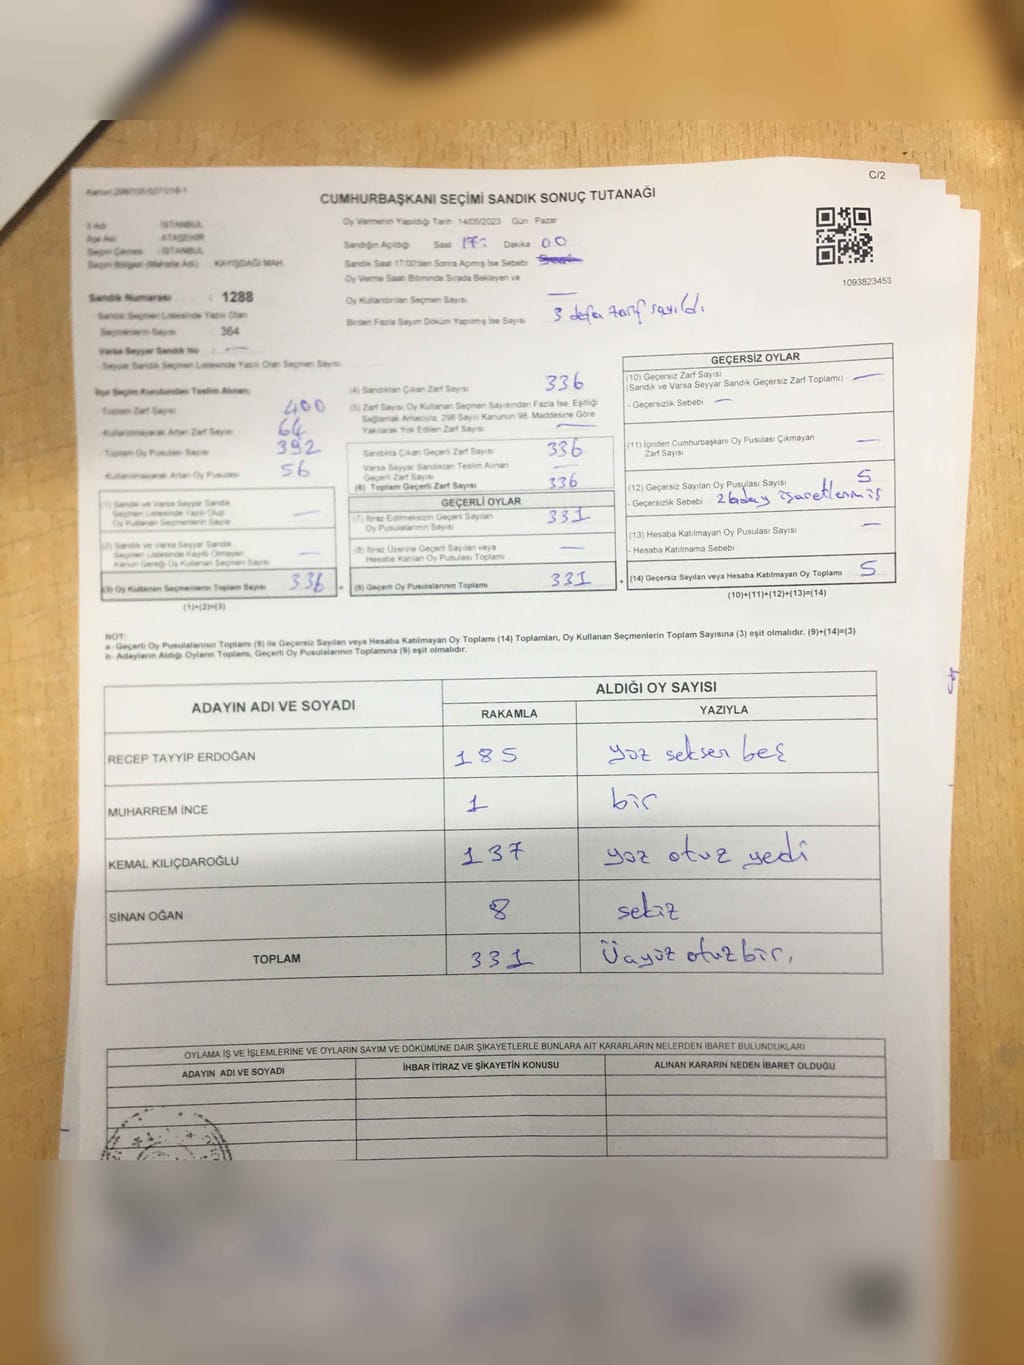 C/2
CUMHURBAŞKANI SEÇİMİ SANDIK SONUÇ TUTANAĞI
İl Adı : İSTANBUL
İlçe Adı : ATAŞEHİR
Seçim Çevresi : İSTANBUL
Seçim Bölgesi (Mahalle Adı) : KAYIŞDAĞI MAH.
Sandık Numarası : 1288
Sandık Seçmen Listesinde Yazılı Olan
Seçmenlerin Sayısı : 364
Varsa Seyyar Sandık No : —
Seyyar Sandık Seçmen Listesinde Yazılı Olan Seçmen Sayısı
Oy Vermenin Yapıldığı Tarih 14/05/2023 Gün Pazar
Sandığın Açıldığı Saat 17: Dakika 00
Sandık Saat 17:00'den Sonra Açımış İse Sebebi
Oy Verme Saati Bitiminde Sırada Bekleyen ve
Oy Kullandırılan Seçmen Sayısı —
Birden Fazla Sayım Döküm Yapılmış İse Sayısı 3 defa zarf sayıldı.
1093823453
İlçe Seçim Kurulundan Teslim Alınan;
Toplam Zarf Sayısı 400
Kullanılmayarak Artan Zarf Sayısı 64
Toplam Oy Pusulası Sayısı 392
Kullanılmayarak Artan Oy Pusulası 56
(1) Sandık ve Varsa Seyyar Sandık
Seçmen Listesinde Yazılı Olup
Oy Kullanan Seçmenlerin Sayısı —
(2) Sandık ve Varsa Seyyar Sandık
Seçmen Listesinde Kayıtlı Olmayan
Kanun Gereği Oy Kullanan Seçmen Sayısı —
(3) Oy Kullanan Seçmenlerin Toplam Sayısı 336 =
(1)+(2)=(3)
(4) Sandıktan Çıkan Zarf Sayısı 336
(5) Zarf Sayısı Oy Kullanan Seçmen Sayısından Fazla İse, Eşitliği
Sağlamak Amacıyla; 298 Sayılı Kanunun 98. Maddesine Göre
Yakılarak Yok Edilen Zarf Sayısı —
Sandıkta Çıkan Geçerli Zarf Sayısı 336
Varsa Seyyar Sandıktan Teslim Alınan
Geçerli Zarf Sayısı —
(6) Toplam Geçerli Zarf Sayısı 336
GEÇERLİ OYLAR
(7) İtiraz Edilmeksizin Geçerli Sayılan
Oy Pusulalarının Sayısı 331
(8) İtiraz Üzerine Geçerli Sayılan veya
Hesaba Katılan Oy Pusulası Toplamı —
(9) Geçerli Oy Pusulalarının Toplamı 331 +
GEÇERSİZ OYLAR
(10) Geçersiz Zarf Sayısı
(Sandık ve Varsa Seyyar Sandık Geçersiz Zarf Toplamı) —
- Geçersizlik Sebebi —
(11) İçinden Cumhurbaşkanı Oy Pusulası Çıkmayan
Zarf Sayısı —
(12) Geçersiz Sayılan Oy Pusulası Sayısı 5
- Geçersizlik Sebebi 2 aday işaretlenmiş
(13) Hesaba Katılmayan Oy Pusulası Sayısı —
- Hesaba Katılmama Sebebi
(14) Geçersiz Sayılan veya Hesaba Katılmayan Oy Toplamı 5
(10)+(11)+(12)+(13)=(14)
NOT:
a- Geçerli Oy Pusulalarının Toplamı (9) ile Geçersiz Sayılan veya Hesaba Katılmayan Oy Toplamı (14) Toplamları, Oy Kullanan Seçmenlerin Toplam Sayısına (3) eşit olmalıdır. (9)+(14)=(3)
b- Adayların Aldığı Oyların Toplamı, Geçerli Oy Pusulalarının Toplamına (9) eşit olmalıdır.
ADAYIN ADI VE SOYADI ALDIĞI OY SAYISI
RAKAMLA YAZIYLA
RECEP TAYYİP ERDOĞAN 185 yüz seksen beş
MUHARREM İNCE 1 bir
KEMAL KILIÇDAROĞLU 137 yüz otuz yedi
SİNAN OĞAN 8 sekiz
TOPLAM 331 Üçyüz otuzbir.
OYLAMA İŞ VE İŞLEMLERİNE VE OYLARIN SAYIM VE DÖKÜMÜNE DAİR ŞİKAYETLERLE BUNLARA AİT KARARLARIN NELERDEN İBARET BULUNDUKLARI
ADAYIN ADI VE SOYADI İHBAR İTİRAZ VE ŞİKAYETİN KONUSU ALINAN KARARIN NEDEN İBARET OLDUĞU